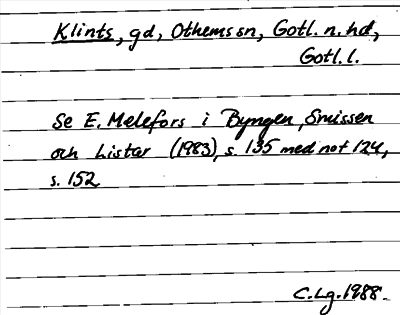 Klints, gd, Othems sn, Gotl. n. hd,
Gotl. l.
Se E. Melefors i Byngen, Smissen
och Lister (1983), s. 135 med not 124,
s. 152
C. Lg. 1988